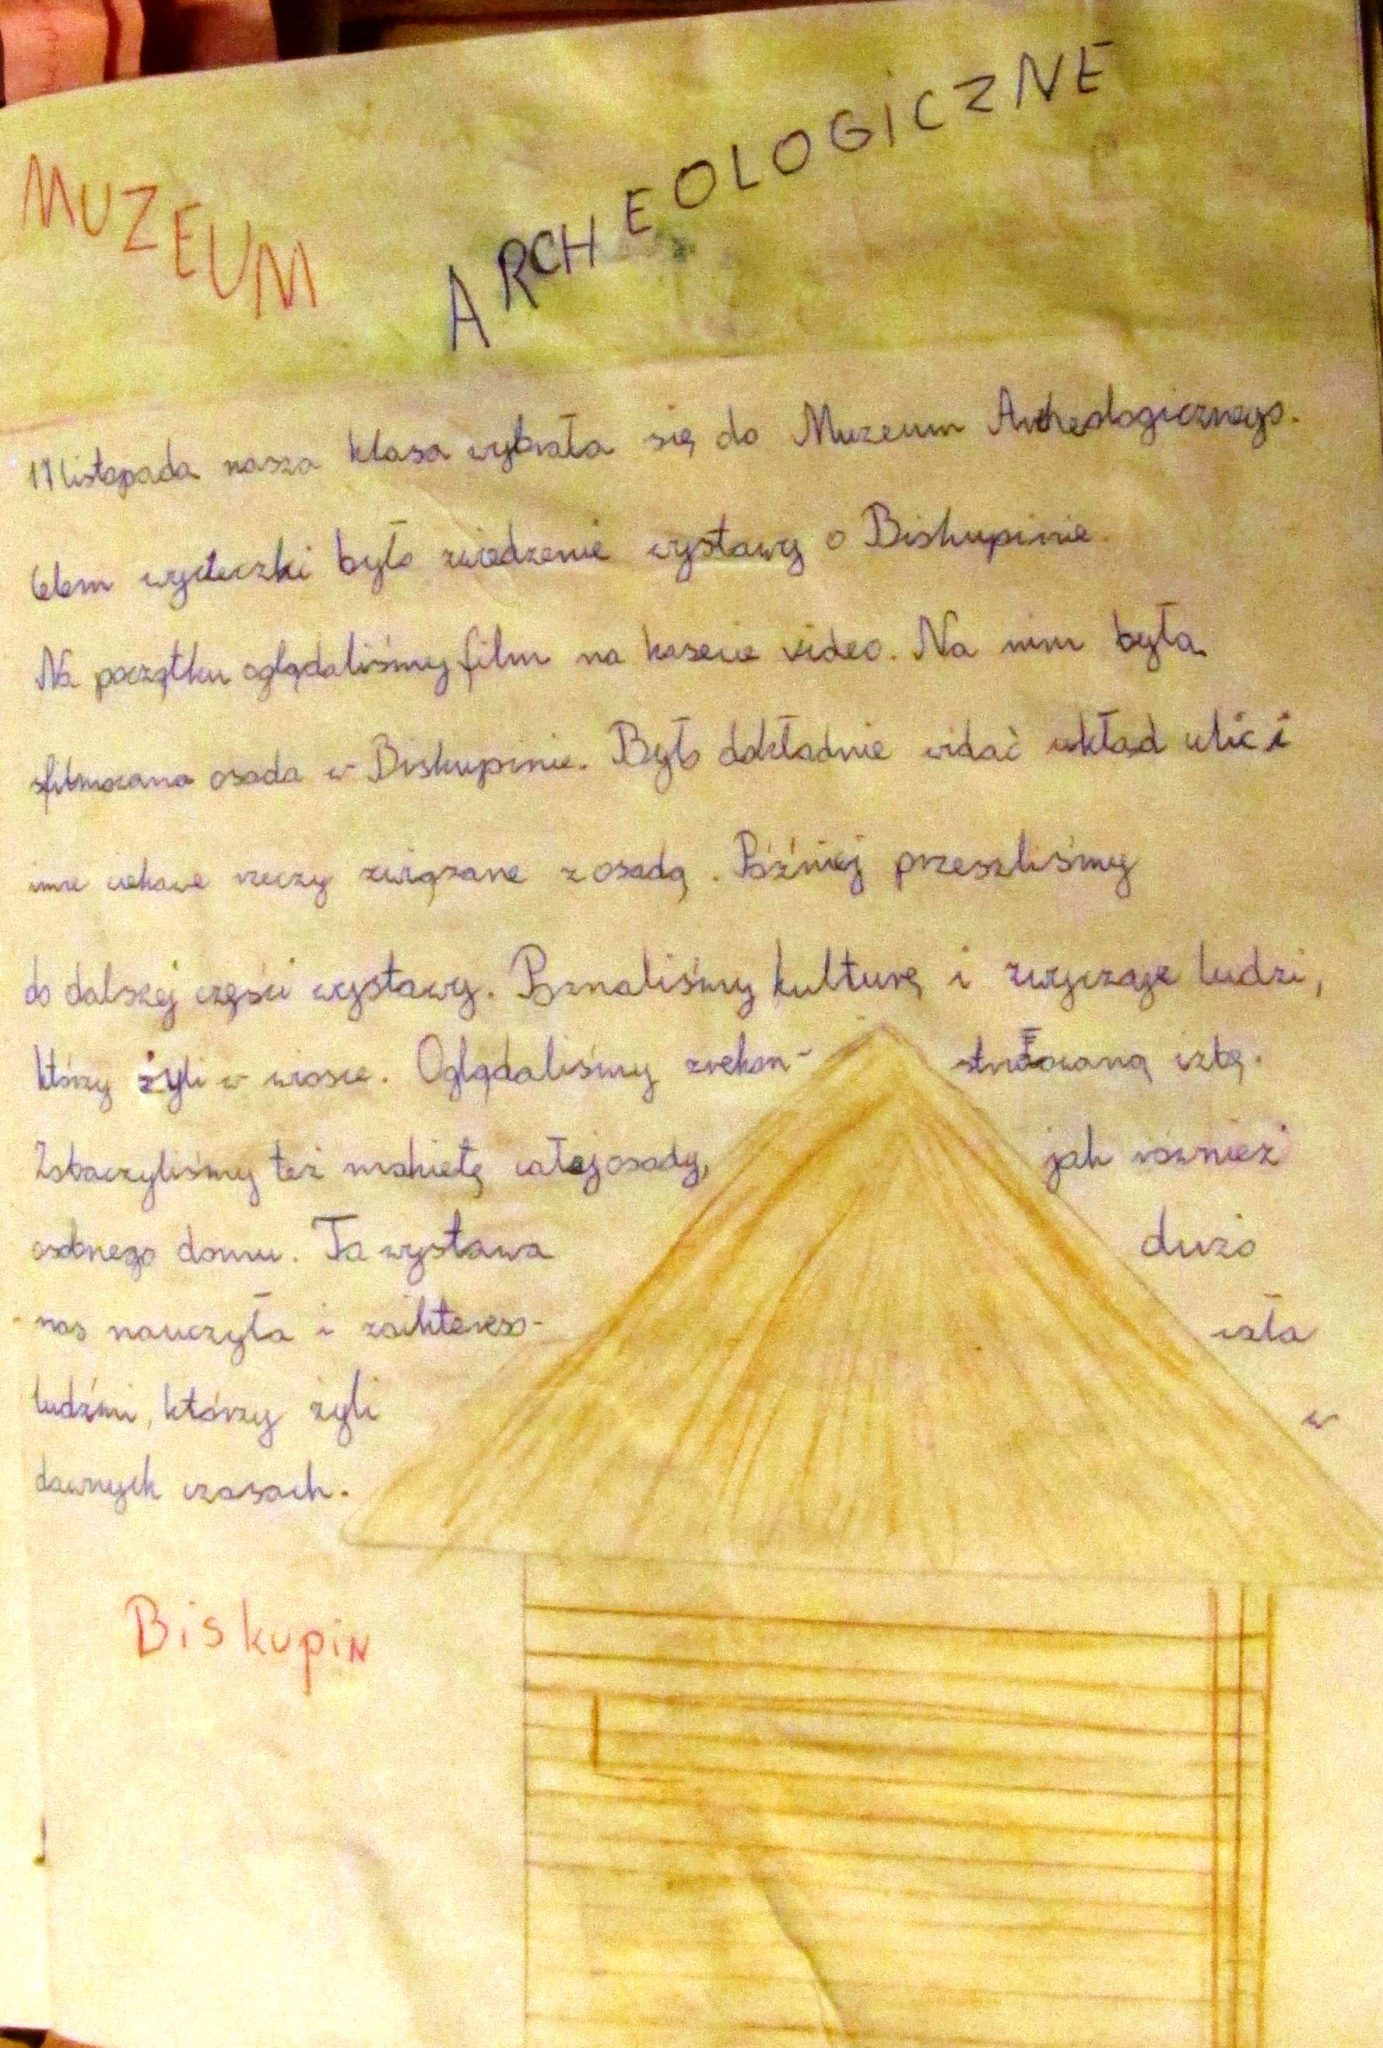 MUZEUM ARCHEOLOGICZNE
17 listopada nasza klasa wybrała się do Muzeum Archeologicznego.
Celem wycieczki było zwiedzenie wystawy o Biskupinie.
Na początku oglądaliśmy film na kasecie video. Na nim była
sfilmowana osada w Biskupinie. Było dokładnie widać układ ulic i
inne ciekawe rzeczy związane z osadą. Później przeszliśmy
do dalszej części wystawy. Poznaliśmy kulturę i zwyczaje ludzi,
którzy żyli w wiosce. Oglądaliśmy zrekon- struowaną izbę.
Zobaczyliśmy też makietę całej osady, jak również
osobnego domu. Ta wystawa dużo
nas nauczyła i zaintereso- wała
ludźmi, którzy żyli w
dawnych czasach.
Biskupin